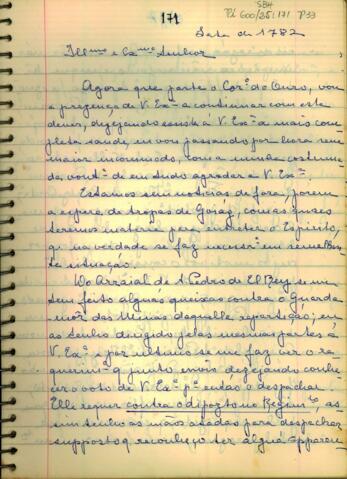 171
SBH
Pl 600/25/171 P33
Data de 1782
Illmo e Exmo Senhor
Agora que parte o Corº do Ouro, vou
a presença de V. Exª a continuar com este
dever, dezejando exista V. Exª a mais com
pleta saude, eu vou passando por hora sem
maior incommodo, com a minha costuma
da vontº de em tudo agradar a V. Exª.
Estamos sem noticias de fora, porem
a espera de tropas de Goiáz, com as quaes
teremos materia para entreter o Espirito,
q' na verdade se faz necessrº em semelhan
te situação.
Do Arraial de S. Pedro de El Rey se me
tem feito algumas queixas contra o Guarda
mór das Minas daquelle repartição; eu
as tenho dirigido pelas mesmas partes á
V. Exª e por ultimo se me faz ver o re
querimtº q' junto envio dezejando conhe
cer o voto de V. Exª pª entao o despachar.
Elle requer contra o disposto no Regimtº, as
sim tenho as mãos atadas para despachar
supposto q' reconheço ter algũa apparen